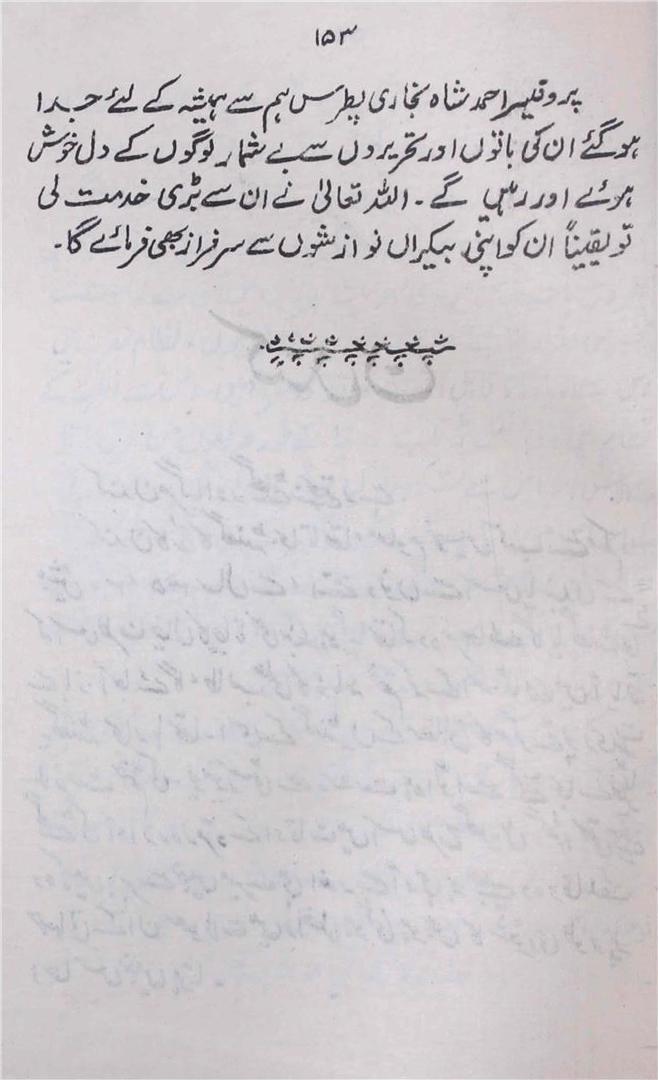 ۱۵۳
پروفیسر احمد شاہ بخاری پطرس ہم سے ہمیشہ کے لئے جدا
ہو گئے ان کی باتوں اور تحریروں سے بے شمار لوگوں کے دل خوش
ہوئے اور رہیں گے۔ اللہ تعالیٰ نے ان سے بڑی خدمت لی
تو یقیناً ان کو اپنی بیکراں نوازشوں سے سرفراز بھی فرمائے گا۔